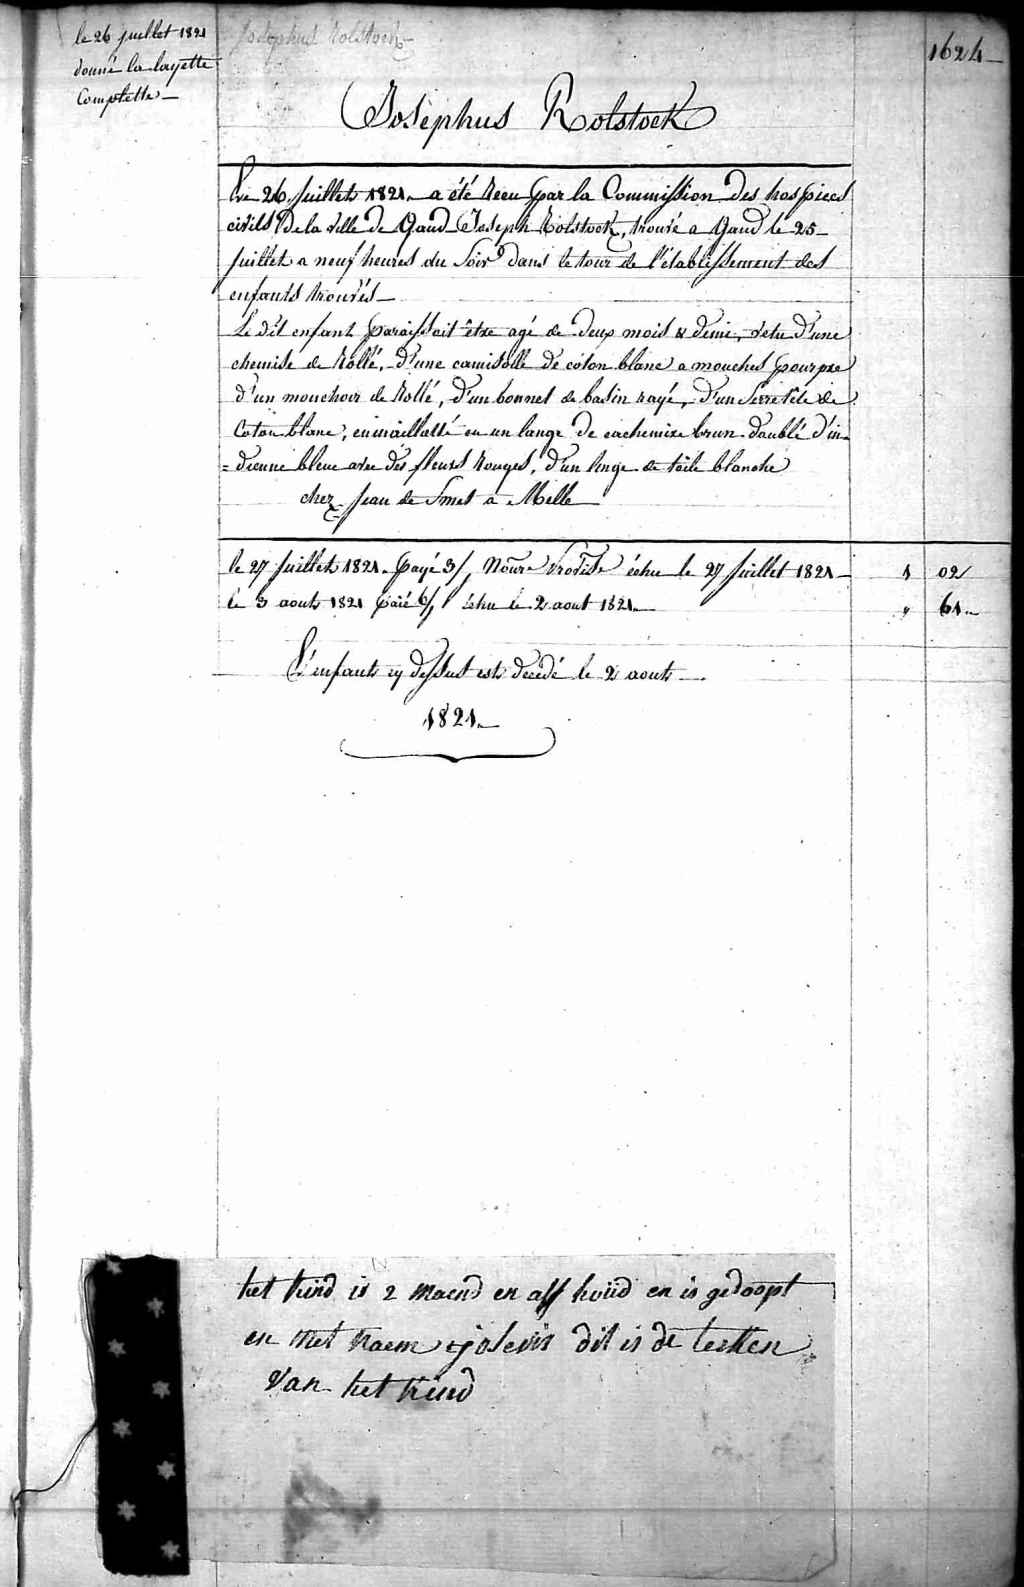 le 26 juillet 1821
donné la layette
Complette
Josephus Rolstock
1624
Josephus Rolstock
Le 26 Juillet 1821. a été Recu par la Commission des hospices
civils De la Ville de Gand Joseph Rolstock, trouvé a Gand le 25
juillet a neuf heures du Soir dans le tour de l'établissement des
enfants trouvés
Le dit enfant paraissait être agé de Deux mois & demie, vetu D'une
chemise de Rollé, D'une camisolle De coton blanc a mouches pourpre
d'un mouchoir de Rollé, d'un bonnet de basin rayé, D'un Serretête de
Coton blanc, enmaillotté en un lange De cachemire brun doublé d'in-
=dienne bleue avec Des fleurs Rouges, D'un linge de toile blanche
chez Jean de Smet a Melle
le 27 Juillet 1821. payé 3/, Nourre Provise échu le 27 Juillet 1821 1 02
le 3 aout 1821 païé 6/, échu le 2 aout 1821. " 61
L'enfants cy dessus est décédé le 2 aout
1821.
het kind is 2 maend en alf houd en is gedoopt
en met naem josevis dit is de teeken
van het kind